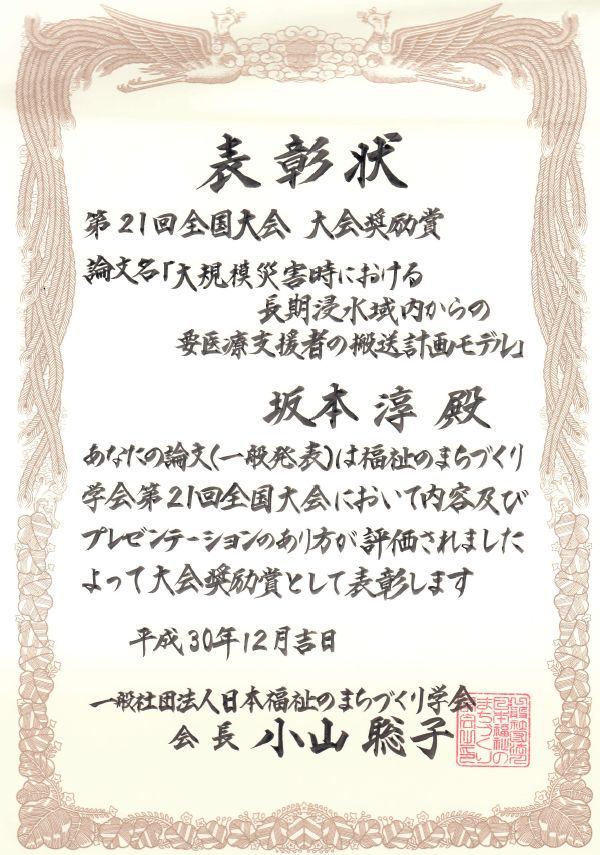 表彰状
第21回全国大会 大会奨励賞
論文名「大規模災害時における
長期浸水域内からの
要医療支援者の搬送計画モデル」
坂本淳 殿
あなたの論文(一般発表)は福祉のまちづくり
学会第21回全国大会において内容及び
プレゼンテーションのあり方が評価されました
よって大会奨励賞として表彰します
平成30年12月吉日
一般社団法人日本福祉のまちづくり学会
会長 小山聡子